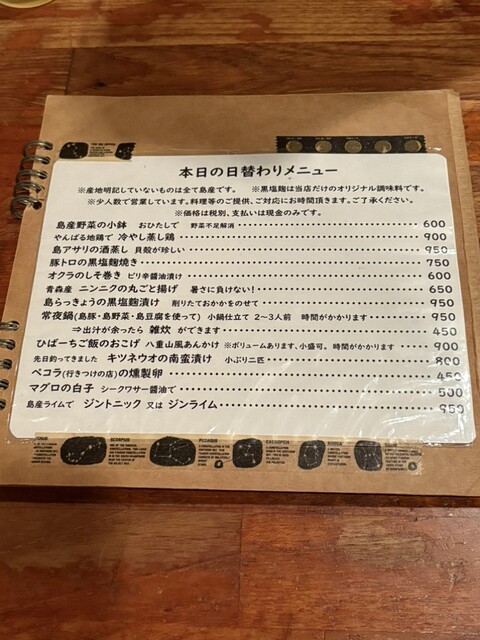 本日の日替わりメニュー
※産地明記していないものは全て島産です。 ※黒塩麹は当店だけのオリジナル調味料です。
※少人数で営業しています。料理等のご提供、ご対応にお時間頂きます。ご了承ください。
※価格は税別、支払いは現金のみです。
島産野菜の小鉢 おひたしで 野菜不足解消 600
やんばる地鶏で 冷やし蒸し鶏 900
島アサリの酒蒸し 貝殻が珍しい 950
豚トロの黒塩麹焼き 750
オクラのしそ巻き ピリ辛醤油漬け 600
青森産 ニンニクの丸ごと揚げ 暑さに負けない! 650
島らっきょうの黒塩麹漬け 削りたておかかをのせて 950
常夜鍋(島豚・島野菜・島豆腐を使って) 小鍋仕立て 2〜3人前 時間がかかります 950
⇒出汁が余ったら 雑炊 ができます 450
ひばーちご飯のおこげ 八重山風あんかけ ※ボリュームあります、小盛可。時間がかかります 900
先日釣ってきました キツネウオの南蛮漬け 小ぶり二匹 800
ペコラ(行きつけの店)の燻製卵 450
マグロの白子 シークワサー醤油で 500
島産ライムで ジントニック 又は ジンライム 950
SCORPIUS
PEGASUS
CASSIOPEIA